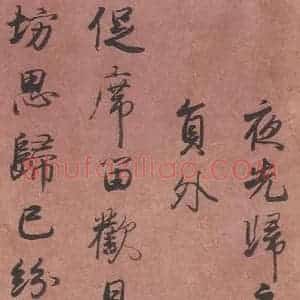 夜光歸
員外
促席留歡
坊思歸已紛
shufaziliao.com